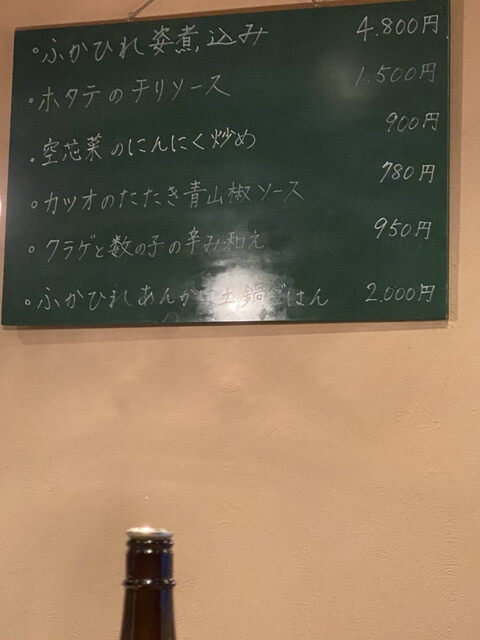 ・ふかひれ姿煮込み 4.800円
・ホタテのチリソース 1.500円
・空芯菜のにんにく炒め 900円
・カツオのたたき青山椒ソース 780円
・クラゲと数の子の辛み和え 950円
・ふかひれあんかけ土鍋ごはん 2.000円